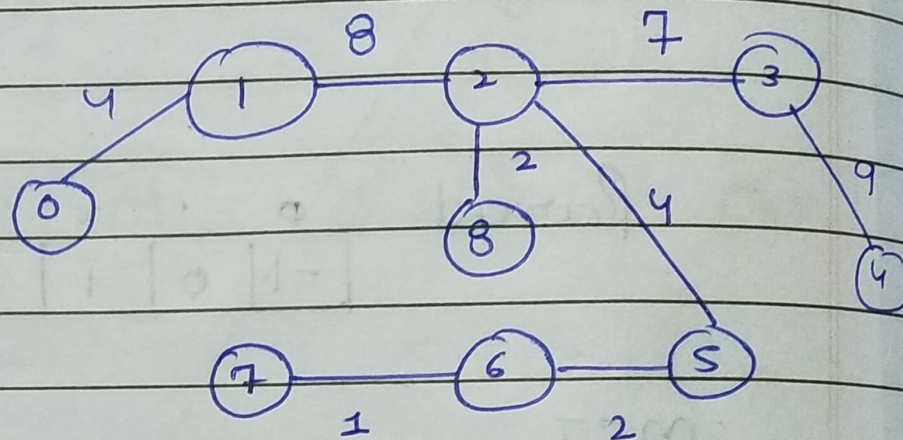 8 7
4 1 2 3
2 9
0 4
8 4
7 6 5
1 2